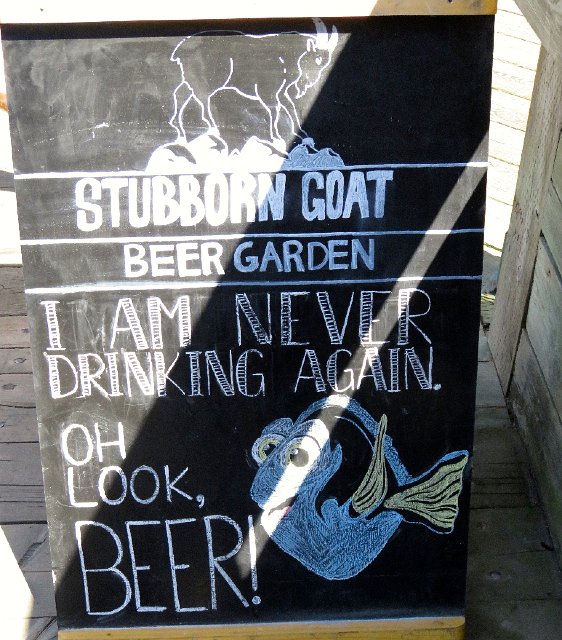 STUBBORN GOAT
BEER GARDEN
I AM NEVER
DRINKING AGAIN.
OH
LOOK,
BEER!